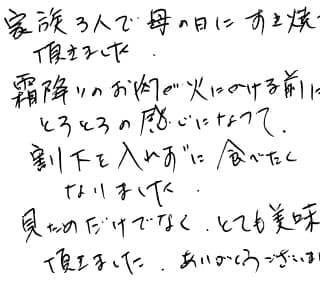 家族3人で母の日にすき焼
頂きました.
霜降りのお肉が火にかける前に
とろとろの感じになって.
割下を入れずに食べたく
なりました.
見ためだけでなく.とても美味
頂きました.ありがとうございま